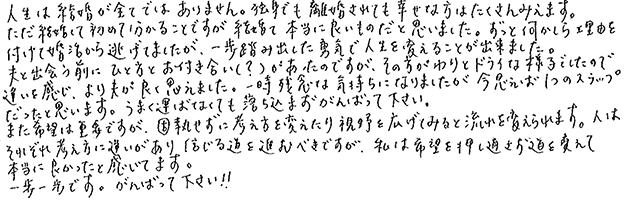 人生は結婚が全てではありません。独身でも離婚されても幸せな方はたくさんみえます。
ただ結婚して初めて分かることですが結婚て本当に良いものだと思いました。ずっと何かしら理由を
付けて婚活から逃げてましたが、一歩踏み出した勇気で人生を変えることが出来ました。
夫と出会う前にひと方とお付き合い(?)があったのですが、その方がわりとドライな様子でしたので
違いを感じ、より夫が良く思えました。一時残念な気持ちになりましたが今思えば1つのステップ。
だったと思います。うまく運ばなくても落ち込まずがんばって下さい。
また希望は重要ですが、固執せずに考え方を変えたり視野を広げてみると流れを変えられます。人は
それぞれ考え方に違いがあり信じる道を進むべきですが、私は希望を押し通さず道を変えて
本当に良かったと感じてます。
一歩一歩です。がんばって下さい!!